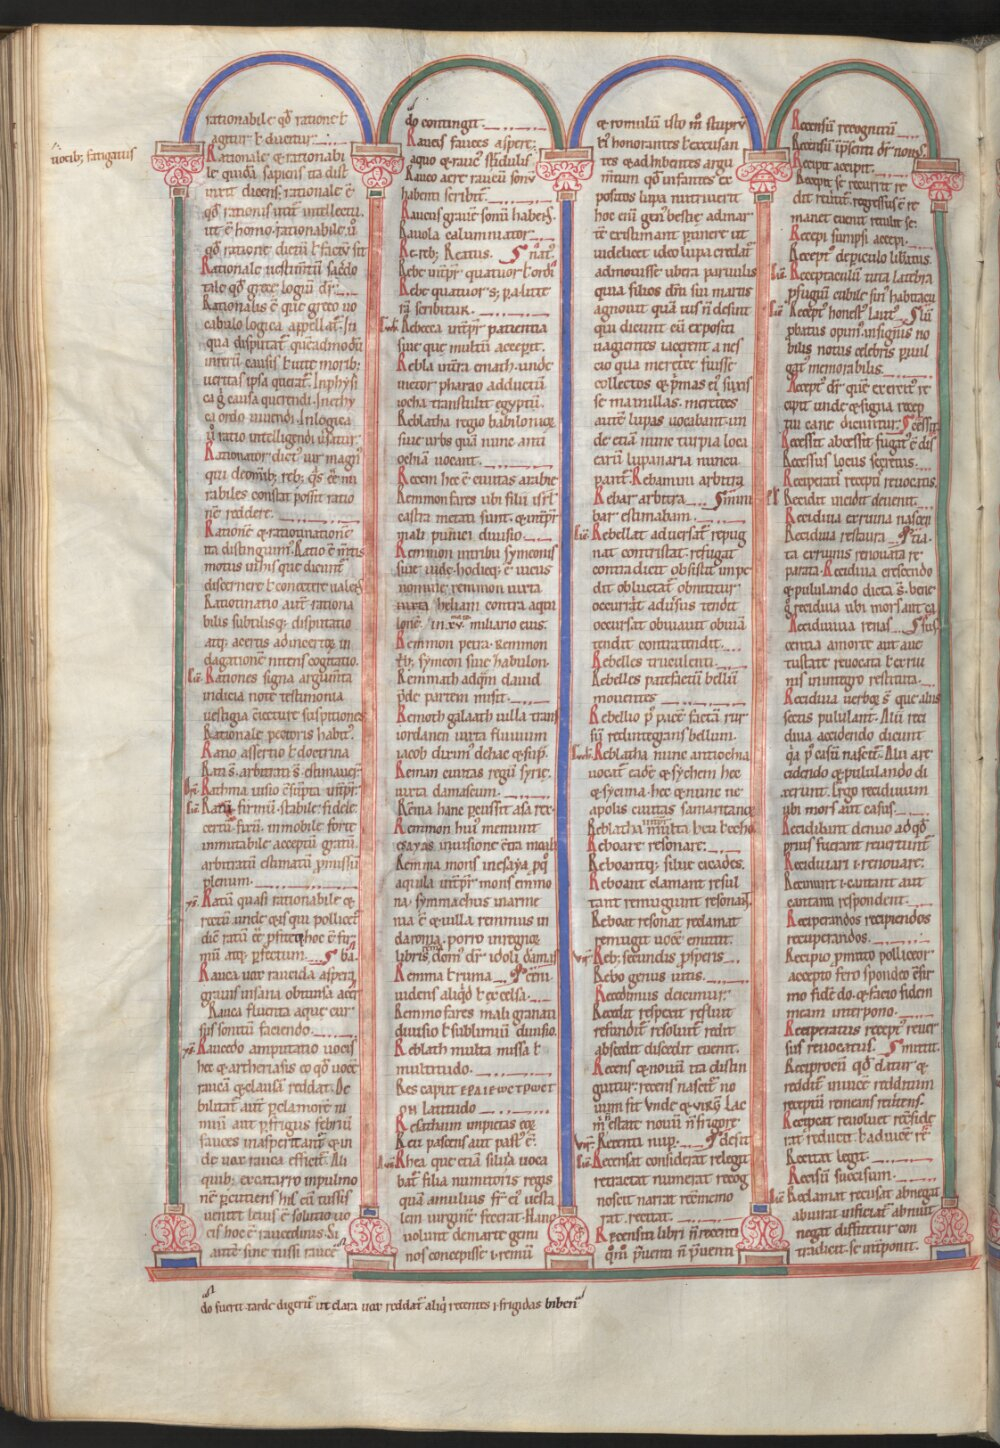 uocib; fatigatus
rationabile qd̄ ratione ł
agitur ł ducitur
Rationale & rationabi
le quidā sapiens ita dist
inxit dicens. rationale ē
qd̄ rationis utit̄ intellectu.
ut ē homo. rationabile ū
qd̄ ratione dictū ł factū sit
Rationale uestimtū sacdo
tale qd̄ grece logiū dr̄.
Rationalis ē que greco uo
cabulo logica appellat̄. In
qua disputat̄ queadmodū
in rerū causis ł uite morib;
ueritas ipsa querat̄. In physi
ca ḡ causa querendi. In ethy
ca ordo uiuendi. In logica
ū ratio intelligendi uersatur.
Rationator dict̄ uir magn̄
qui de omīb; reb; qs ēē mi
rabiles constat possit ratio
nē reddere.
Rationē & ratiotinationē
ita distinguim̄. Ratio ē m̄tis
motus
discernere ł conectere ualens
Ratiotinatio aut̄ rationa
bilis subtilisq; disputatio
atq; acertis ad incertoȝ in
dagationē nitens cogitatio.
Rationes signa argum̄ta
indicia note testimonia
uestigia suspitiones
Rationale pectoris habit̄.
Ratio assertio ł doctrina
Rati s̄. arbitrati s̄. estimauer̄.
Rathma uisio
Ratū. firmū. stabile. fidele.
certū. fixū. inmobile forte
inmutabile acceptū gratū.
arbitratū estimatū pmissū
plenum.
Ratū quasi rationabile &
rectū unde & is qui pollicet̄
dic̄ ratū ēē hoc ē fir
mū atq; pfectum. ba.
Rauca uox raucida aspera
grauis insana obtunsa
Rauca fluenta aque cur
sus sonitū faciendo.
Raucedo amputatio uocis
hec & archeriasis eo qd̄ uocē
raucā & clausā reddat. De
bilitat̄ aut̄ p clamorē ni
miū aut p frigus febriū
fauces inasperitantiū & in
de uox rauca efficit̄. Ali
quib; ex catarro inpulmo
nē pcutiens his etiā tussis
uenit leuis ē solutio uo
cis hoc ē raucedinis. Si
autē sine tussi raucē
do contingit
Raucis fauces aspere.
aquo & rauc̄ stridulus
Rauco aere raucū sonū
habenti scribit̄.
Raucus grauē sonū habens.
Rauola calumniator
Re. reb; Reatus. nat̄.
Rebe int̄pr̄ quatuor ł ordi
Rebe quatuor s; p alitte
rā scribitur.
Rebecca int̄pr̄ patientia
siue que multū accepit.
Rebla in t̄ra emath. unde
uictor pharao adductū
iocha transtulit egyptū.
Reblatha regio babilonioȝ
siue urbs quā nunc anti
ochiā uocant.
Recem hec ē ciuitas arabie
Remmon fares ubi filii isrł
castra metati sunt. & int̄pr̄
mali punici diuisio
Remmon intribu symeonis
siue iude. hodieq; ē uicus
nomine remmon iuxta
iuxta heliam contra aqui
lonē. in .xv. miliario eius.
Remmon petra. Remmon
t̄r; symeon siue habulon.
Remmath adquā dauid
p̄de partem misit.
Remoth galaath uilla trans
iordanen iuxta fluuium
iacob dirim̄ dehac & sup̄.
Reman ciuitas regū syrie.
iuxta damascum.
Rēma hanc pcussit asa rex.
Remmon hui̅ meminit
esayas inuisione c̄tra moab
Remma mons in esaya p̄q
aquila int̄pr̄ mons emmo
na. symmachus in arme
nia ē & uilla remmus in
daroma. porro in regnoȝ
libris dom̄ dr̄ idoli damas
Remma ł ruma
uidens aliqd̄ ł excelsa.
Remmo fares mali granati
diuisio ł sublimiū diuisio.
Reblath multa missa ł
multitudo.
Res caput
latitudo
Resathaum impietas eoȝ
Reu pascens aut past̄ ē
Rhea que etiā siluia uoca
bat̄ filia numitoris regis
quā amulius fr̄ ei̅ uesta
lem uirginē fecerat. Hanc
uolunt de marte gemi
nos concepisse. i. remū
& romulū isto m̄ stuprū
ł ei̅ honorantes ł excusan
tes & adhibentes argu
m̄tum qd̄ infantes ex
positos lupa nutriuerit
hoc eni̅ gen̄ bestie ad mar
tē existimant ptinere ut
uidelicet ideo lupa credat̄
admouisse ubera paruulis
quia filios dn̄i sui martis
agnouit quā tuis n̄ desint
qui dicunt eū expositi
uagientes iacerent a nes
cio qua meretrice fuisse
collectos & p̄mas ei̅ suxis
se mamillas. meretrices
autē lupas uocabant. un
de etiā nunc turpia loca
earū lupanaria nuncu
pant̄. Rebamini arbitra
Rebar arbitra mini
bar estimabam.
Rebellat aduersat̄ repug
nat contristat. refugat
contradicit obsistit inpe
dit obluctat̄ obnititur
occurrit aduersus tendit
occursat obuiauit obuiā
tendit contra tendit.
Rebelles truculenti
Rebelles patefactū bellū
mouentes
Rebellio p̄ pacē factā rur
sū redintegrans bellum.
Reblatha nunc antiochia
uocat̄ eadē & sychem hec
& sycima. hec & nunc ne
apolis ciuitas samaritanoȝ
Reblatha multa
Reboare resonare.
Reboantq; silue cicades.
Reboant clamant resul
tant remugiunt resonant.
Reboat resonat reclamat
remugit uocē emittit.
Reb; secundis pspis
Rebo genus iuris.
Recedimus deicimur.
Recedit respexit resiluit
refundit resoluit redit
abscedit discedit euenit.
Recens & nouū ita distin
guitur. recens nascit̄ no
uum fit Vnde & uirḡ Lac
m̄ estate nouū n̄ frigore
Recenti nup. desit
Recensat considerat relegit
retractat numerat recog
noscit narrat rememo
rat. recitat.
Recensiti libri n̄ recenti
qm̄ puenti n̄ puenti
Recensiū recognitū
Recensiti ipsenti dr̄ nomīs.
Recepit accepit.
Recepit se recurrit re
diit reuersit. regressus ē re
manet euenit reuersit se.
Recepi sumpsi accepi.
Recept̄ de periculo libatus.
Receptaculū tuta latebra
pfugiū cubile sin̄ habitacu
Recept̄ honest̄ laut̄ lū
pbatus opim̄. insignis no
bilis notus celebris puul
gat̄ memorabilis.
Recept̄ dr̄ que exercit̄ re
cipit unde & signa recep
tui cane dicuntur. cessit
Recessit abcessit fugat̄ ē dis
Recessus locus secretus.
Reciperati recepti reuocatus.
Recidit incidit deuenit.
Recidiua ex ruina nascen
Recidiua restaura tia
ta ex ruinis renouata re
parata. Recidiua crescendo
& pululando dicta s̄. bene
ḡ recidiua ubi mors aut ca
Reciduiua renas sus.
centia amorte aut aue
tustate reuocata ł ex rui
nis in integro restituta.
Recidiua uerboȝ s̄ que alius
secus pululant. Alii reci
diua accidendo dicunt
q̄a p̄ casū nascit̄. Alii a re
cidendo & pululando di
xerunt. Ergo recidiuum
ubi mors aut casus.
Recidibunt denuo ad qd̄
prius fuerant reuertunt̄
Reciduiari. i. renouare.
Recinunt. i. cantant aut
cantanti respondent.
Reciperandos recipiendos
recuperandos.
Recipio pmitto polliceor
accepto fero spondeo cfir
mo fidē do. & facio fidem
meam interpono.
Reciperatus recept̄ reuer
sus reuocatus. mittit.
Reciprocū qd̄ datur &
redditū inuicē redditum
receptū remeans reuersens.
Recipeat reuoluet
rat reducit ł aduice
Recitat legit.
Recisū succisum.
Reclamat recusat abnegat
abiurat inficiat̄ abnuit
negat diffitetur con
tradicit se int̄ponit.
do fuerit tarde digeritū ut clara uox reddat̄ aliq̄ recentes i frigidas biben